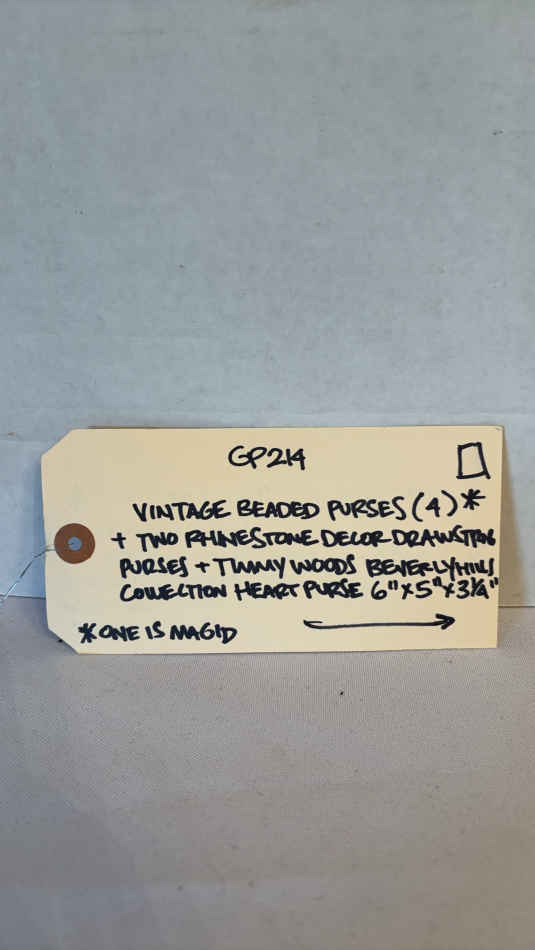 GP214
VINTAGE BEADED PURSES (4)*
+ TWO RHINESTONE DECOR DRAWSTRING
PURSES + TIMMY WOODS BEVERLY HILLS
COLLECTION HEART PURSE 6"x5"x3¼"
*ONE IS MAGID